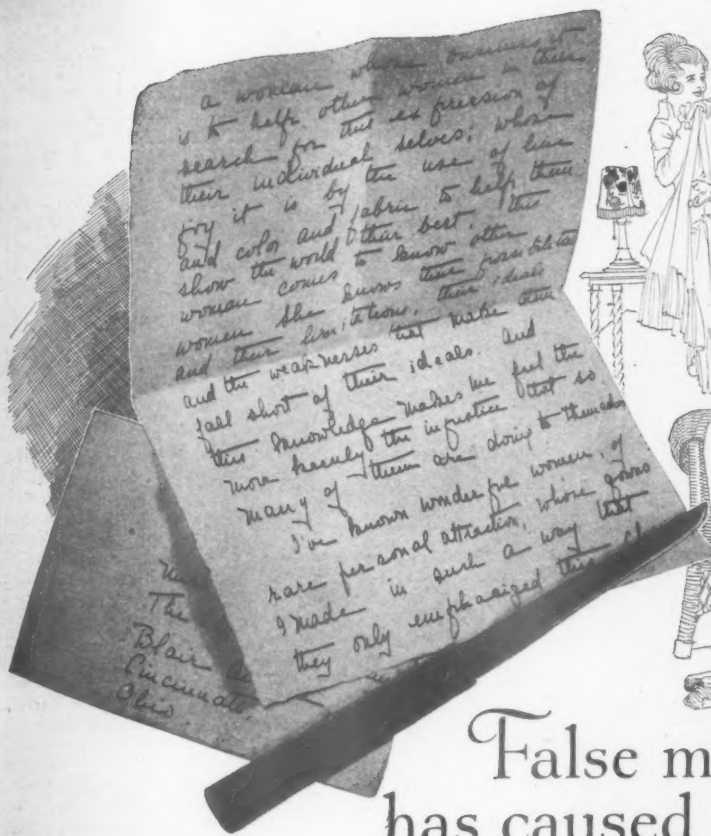 a woman whose business it
is to help other women in their
search for the expression of
their individual selves; whose
joy it is by the use of line
and color and fabric to help them
show the world their best. This
woman comes to know other
women she knows their possibilities
and their limitations, their ideals
and the weaknesses that make them
fall short of their ideals. And
this knowledge makes me feel the
more keenly the injustice that so
many of them are doing to themselves
I've known wonderful women, of
rare personal attraction, whose gowns
I made in such a way that
they only emphasized this
The
Blair
Cincinnati,
Ohio.
False m
has caused